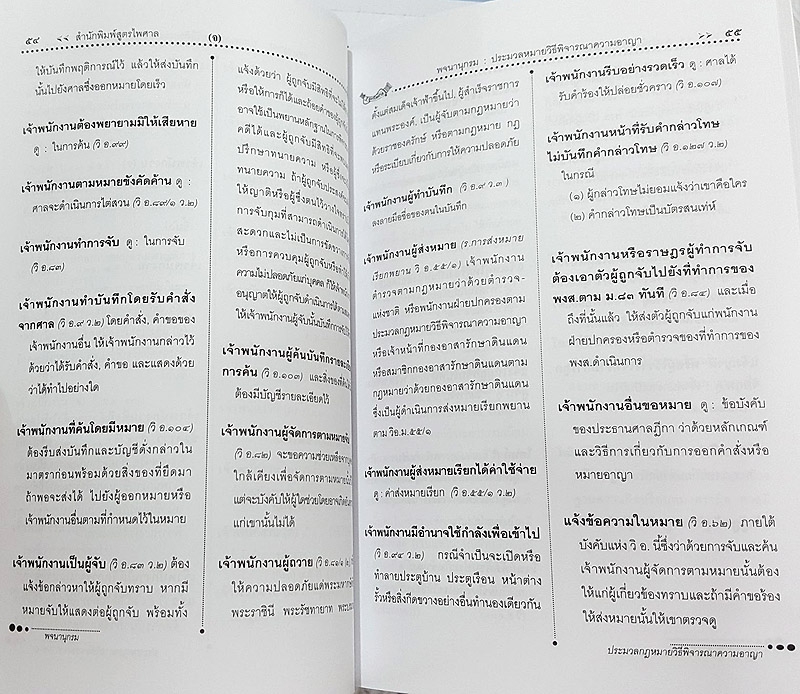 ๕๔ สำนักพิมพ์สูตรไพศาล
(จ)
ให้บันทึกพฤติการณ์ไว้ แล้วให้ส่งบันทึก
นั้นไปยังศาลซึ่งออกหมายโดยเร็ว
เจ้าพนักงานต้องพยายามมิให้เสียหาย
ดู : ในการค้น (วิ อ.๙๙)
เจ้าพนักงานตามหมายขังคัดค้าน ดู :
ศาลจะดำเนินการไต่สวน (วิ อ.๘๙/๑ ว.๒)
เจ้าพนักงานทำการจับ ดู : ในการจับ
(วิ อ.๘๓)
เจ้าพนักงานทำบันทึกโดยรับคำสั่ง
จากศาล (วิ อ.๙ ว.๒) โดยคำสั่ง, คำขอของ
เจ้าพนักงานอื่น ให้เจ้าพนักงานกล่าวไว้
ด้วยว่าได้รับคำสั่ง, คำขอ และแสดงด้วย
ว่าได้ทำไปอย่างใด
เจ้าพนักงานที่ค้นโดยมีหมาย (วิ อ.๑๐๔)
ต้องรีบส่งบันทึกและบัญชีดั่งกล่าวใน
มาตราก่อนพร้อมด้วยสิ่งของที่ยึดมา
ถ้าพอจะส่งได้ ไปยังผู้ออกหมายหรือ
เจ้าพนักงานอื่นตามที่กำหนดไว้ในหมาย
เจ้าพนักงานเป็นผู้จับ (วิ อ.๘๓ ว.๒) ต้อง
แจ้งข้อกล่าวหาให้ผู้ถูกจับทราบ หากมี
หมายจับให้แสดงต่อผู้ถูกจับ พร้อมทั้ง
แจ้งด้วยว่า ผู้ถูกจับมีสิทธิที่จะ
หรือให้การก็ได้และถ้อยคำของผู้ถูก
อาจใช้เป็นพยานหลักฐานในการ
คดีได้และผู้ถูกจับมีสิทธิที่จะ
ปรึกษาทนายความ หรือผู้ซึ่ง
ทนายความ ถ้าผู้ถูกจับประสงค์
ให้ญาติหรือผู้ซึ่งตนไว้วางใจทราบ
การจับกุมที่สามารถดำเนินการได้
สะดวกและไม่เป็นการขัดขวาง
หรือการควบคุมผู้ถูกจับหรือ
ความไม่ปลอดภัยแก่บุคคล ก็ให้
อนุญาตให้ผู้ถูกจับดำเนินการได้ตาม
ให้เจ้าพนักงานผู้จับนั้นบันทึก
เจ้าพนักงานผู้ค้นบันทึก
การค้น (วิ อ.๑๐๓) และสิ่งของที่ค้น
ต้องมีบัญชีรายละเอียดไว้
เจ้าพนักงานผู้จัดการตามหมาย
(วิ อ.๘๒) จะขอความช่วยเหลือจาก
ใกล้เคียงเพื่อจัดการตามหมาย
แต่จะบังคับให้ผู้ใดช่วยโดยอาจเกิด
แก่เขานั้นไม่ได้
เจ้าพนักงานผู้ถวาย
ให้ความปลอดภัยแด่พระมหา
พระราชินี พระรัชทายาท
พจนานุกรม
พจนานุกรม : ประมวลกฎหมายวิธีพิจารณาความอาญา ๕๕
ตั้งแต่สมเด็จเจ้าฟ้าขึ้นไป, ผู้สำเร็จราชการ
แทนพระองค์, เป็นผู้จับตามกฎหมายว่า
ด้วยราชองครักษ์ หรือตามกฎหมาย กฎ
หรือระเบียบเกี่ยวกับการให้ความปลอดภัย
เจ้าพนักงานผู้ทำบันทึก (วิ อ.๙ ว.๓)
ลงลายมือชื่อของตนในบันทึก
เจ้าพนักงานผู้ส่งหมาย (ร.การส่งหมาย
เรียกพยาน วิ อ.๕๕/๑) เจ้าพนักงาน
ตำรวจตามกฎหมายว่าด้วยตำรวจ-
แห่งชาติ หรือพนักงานฝ่ายปกครองตาม
ประมวลกฎหมายวิธีพิจารณาความอาญา
หรือเจ้าหน้าที่กองอาสารักษาดินแดน
หรือสมาชิกกองอาสารักษาดินแดนตาม
กฎหมายว่าด้วยกองอาสารักษาดินแดน
ซึ่งเป็นผู้ดำเนินการส่งหมายเรียกพยาน
ตาม วิอ.ม.๕๕/๑
เจ้าพนักงานผู้ส่งหมายเรียกได้ค่าใช้จ่าย
ดู : ค่าส่งหมายเรียก (วิ อ.๕๕/๑ ว.๒)
เจ้าพนักงานมีอำนาจใช้กำลังเพื่อเข้าไป
(วิ อ.๙๔ ว.๒) กรณีจำเป็นจะเปิดหรือ
ทำลายประตูบ้าน ประตูเรือน หน้าต่าง
รั้วหรือสิ่งกีดขวางอย่างอื่นทำนองเดียวกัน
เจ้าพนักงานรีบอย่างรวดเร็ว ดู : ศาลได้
รับคำร้องให้ปล่อยชั่วคราว (วิ อ.๑๐๗)
เจ้าพนักงานหน้าที่รับคำกล่าวโทษ
ไม่บันทึกคำกล่าวโทษ (วิ อ.๑๒๗ ว.๒)
ในกรณี
(๑) ผู้กล่าวโทษไม่ยอมแจ้งว่าเขาคือใคร
(๒) คำกล่าวโทษเป็นบัตรสนเท่ห์
เจ้าพนักงานหรือราษฎรผู้ทำการจับ
ต้องเอาตัวผู้ถูกจับไปยังที่ทำการของ
พงส.ตาม ม.๘๓ ทันที (วิ อ.๘๔) และเมื่อ
ถึงที่นั้นแล้ว ให้ส่งตัวผู้ถูกจับแก่พนักงาน
ฝ่ายปกครองหรือตำรวจของที่ทำการของ
พงส.ดำเนินการ
เจ้าพนักงานอื่นขอหมาย ดู : ข้อบังคับ
ของประธานศาลฎีกา ว่าด้วยหลักเกณฑ์
และวิธีการเกี่ยวกับการออกคำสั่งหรือ
หมายอาญา
แจ้งข้อความในหมาย (วิ อ.๖๒) ภายใต้
บังคับแห่ง วิ อ. นี้ซึ่งว่าด้วยการจับและค้น
เจ้าพนักงานผู้จัดการตามหมายนั้นต้อง
ให้แก่ผู้เกี่ยวข้องทราบและถ้ามีคำขอร้อง
ให้ส่งหมายนั้นให้เขาตรวจดู
ประมวลกฎหมายวิธีพิจารณาความอาญา